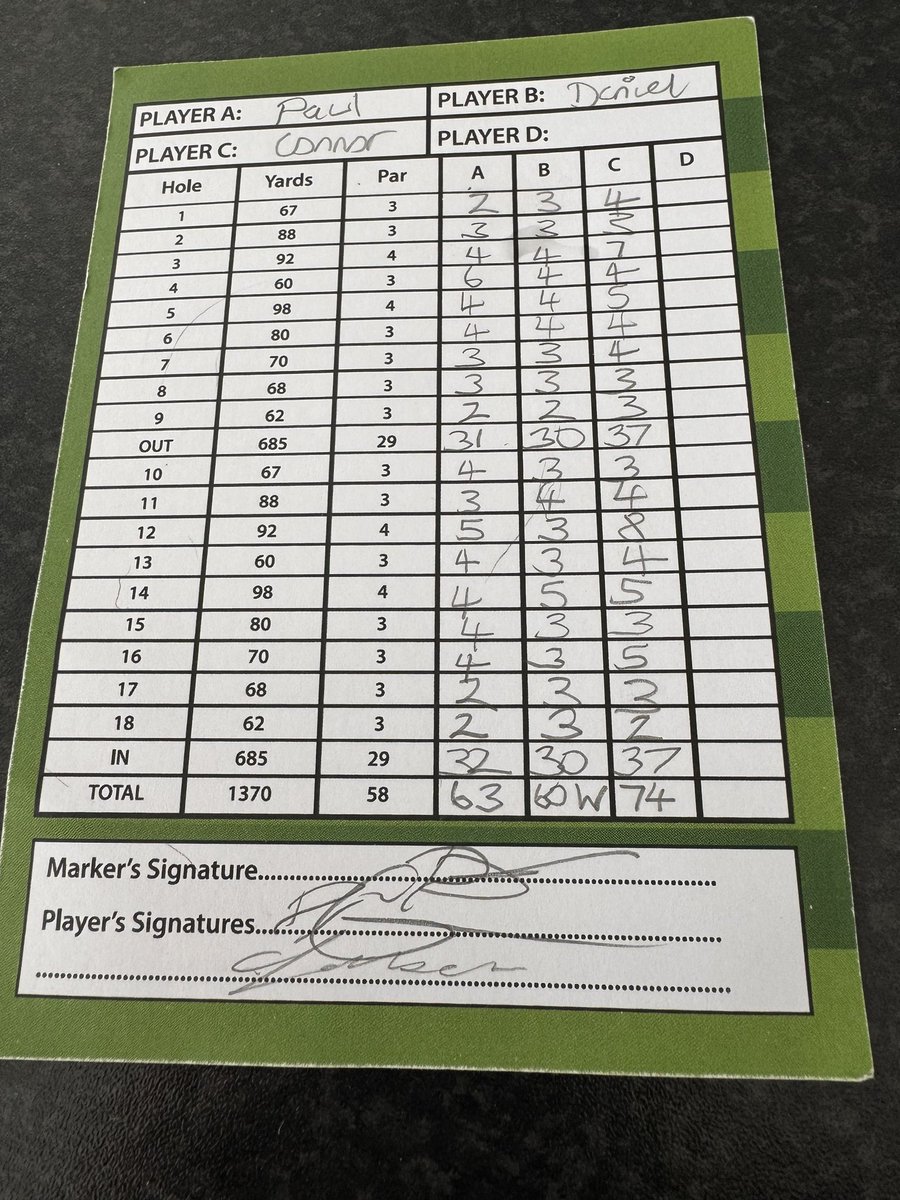 PLAYER A: Paul PLAYER B: Daniel
PLAYER C: Connor PLAYER D:
Hole Yards Par A B C D
1 67 3 2 3 4
2 88 3 3 3 3
3 92 4 4 4 7
4 60 3 6 4 4
5 98 4 4 4 5
6 80 3 4 4 4
7 70 3 3 3 4
8 68 3 3 3 3
9 62 3 2 2 3
OUT 685 29 31 30 37
10 67 3 4 3 3
11 88 3 3 4 4
12 92 4 5 3 8
13 60 3 4 3 4
14 98 4 4 5 5
15 80 3 4 3 3
16 70 3 4 3 5
17 68 3 2 3 3
18 62 3 2 3 2
IN 685 29 32 30 37
TOTAL 1370 58 63 60 W 74
Marker's Signature
Player's Signatures